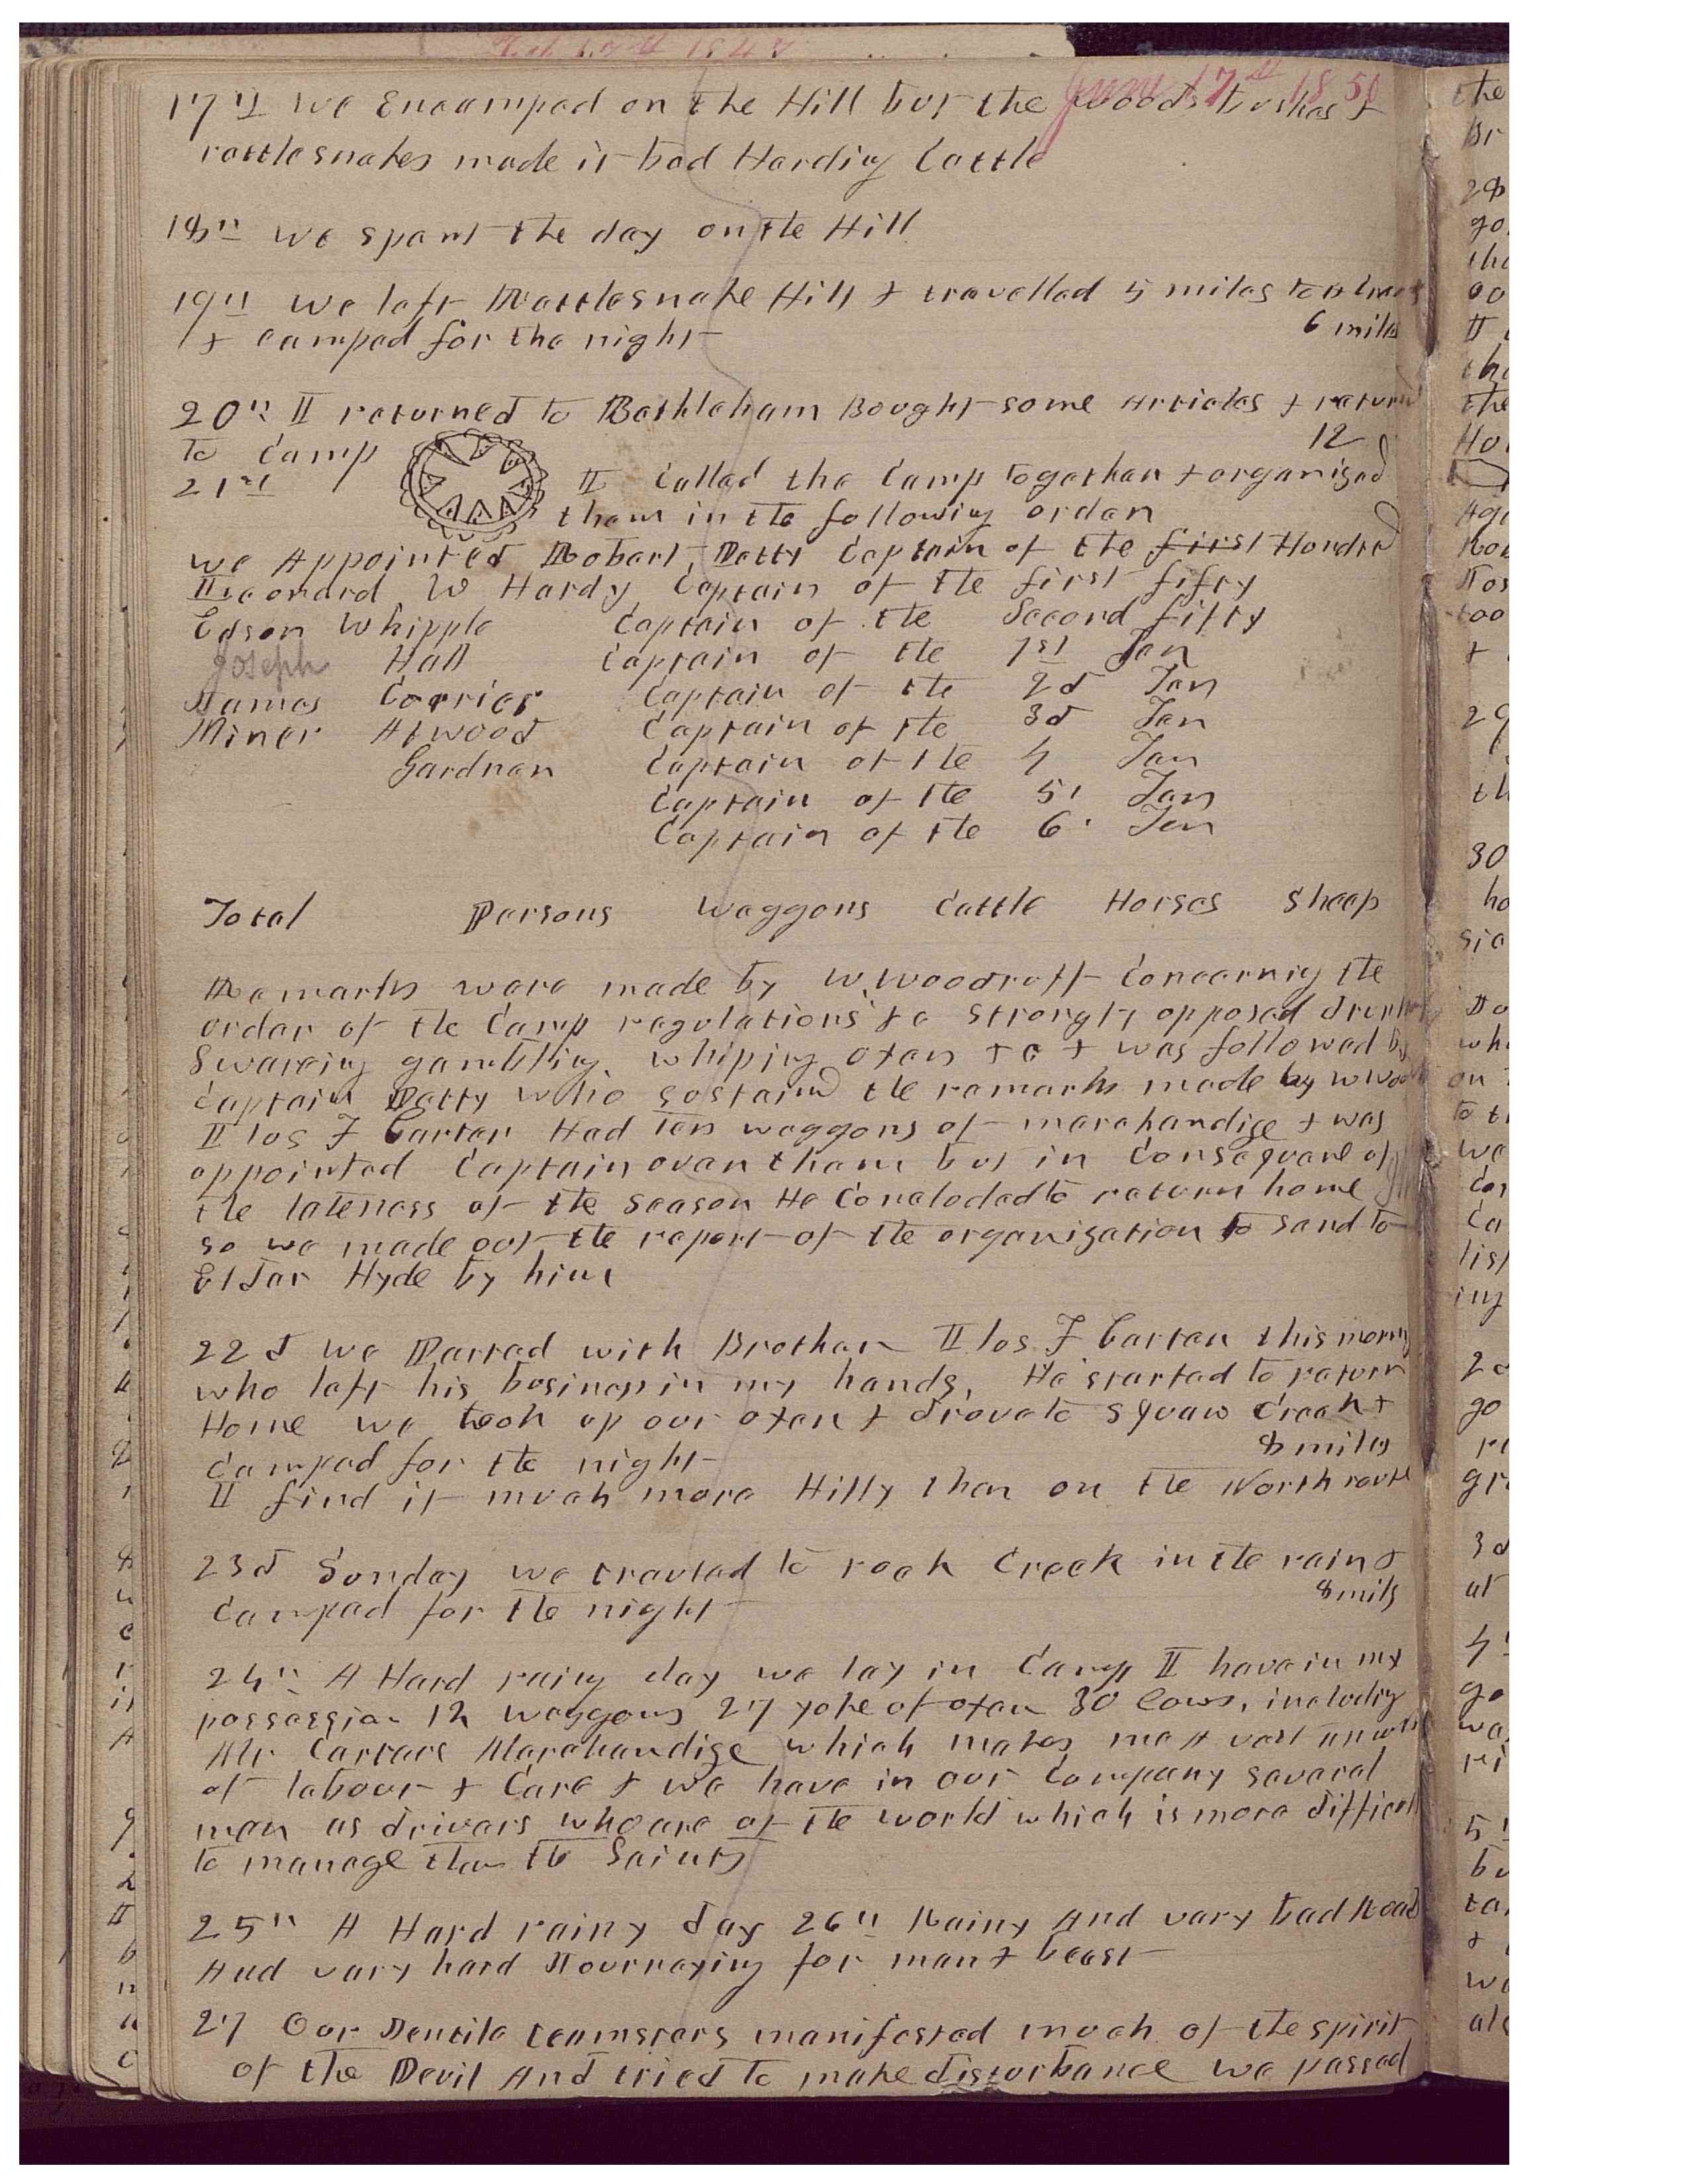 June 17th 1850
17th We Encamped on the Hill but the woods bushes &
rattlesnakes made it bad Herding Cattle
18th we spent the day on the Hill
19th we left Rattlesnake Hill & travelled 5 miles to
& camped for the night 6 miles
20th I returned to Bethleham Bought some articles & return
to Camp 12
21st I Called the Camp together & organized
them in the following order
we Appointed Robert Petty Captain of the first Hundred
Leonard W Hardy Captain of the first fifty
Edson Whipple Captain of the Second fifty
Joseph Hall Captain of the 1st Ten
James Currier Captain of the 2d Ten
Miner Atwood Captain of the 3d Ten
Gardner Captain of the 4 Ten
Captain of the 5' Ten
Captain of the 6' Ten
Total Persons Waggons Cattle Horses Sheep
Remarks were made by W. Woodruff Concerning the
order of the Camp regulations &c strongly opposed
Swareing gambling, whiping oxen &c & was followed by
Captain Petty who sustaind the remarks made by
Elos F Carter Had ten waggons of merchandize & was
appointed Captain over them but in Consequence of
the lateness of the Season He Concluded to return home
so we made out the report of the organization to send to
Elder Hyde by him
22d we Parted with Brother Elos F Carter this morng
who left his business in my hands, He started to return
Home we took up our oxen & drove to Squaw Creek &
Camped for the night 8 miles
I find it much more Hilly than on the North rout
23d Sunday we traveled to rock Creek in the rain &
Camped for the night 8 mils
24th A Hard rainy day we lay in Camp I have in my
possession 12 waggons 27 yoke of oxen 30 Cows, includig
Mr Carters Marchandize which makes me A vast
of labour & Care & we have in our Company several
men as drivers who are of the world which is more difficult
to manage than the Saints
25th A Hard rainy day 26th Rainy And vary bad Road
And vary hard Journeying for man & beast
27 Our Gentile teamsters manifested much of the spirit
of the Devil And tried to make disturbance we passed